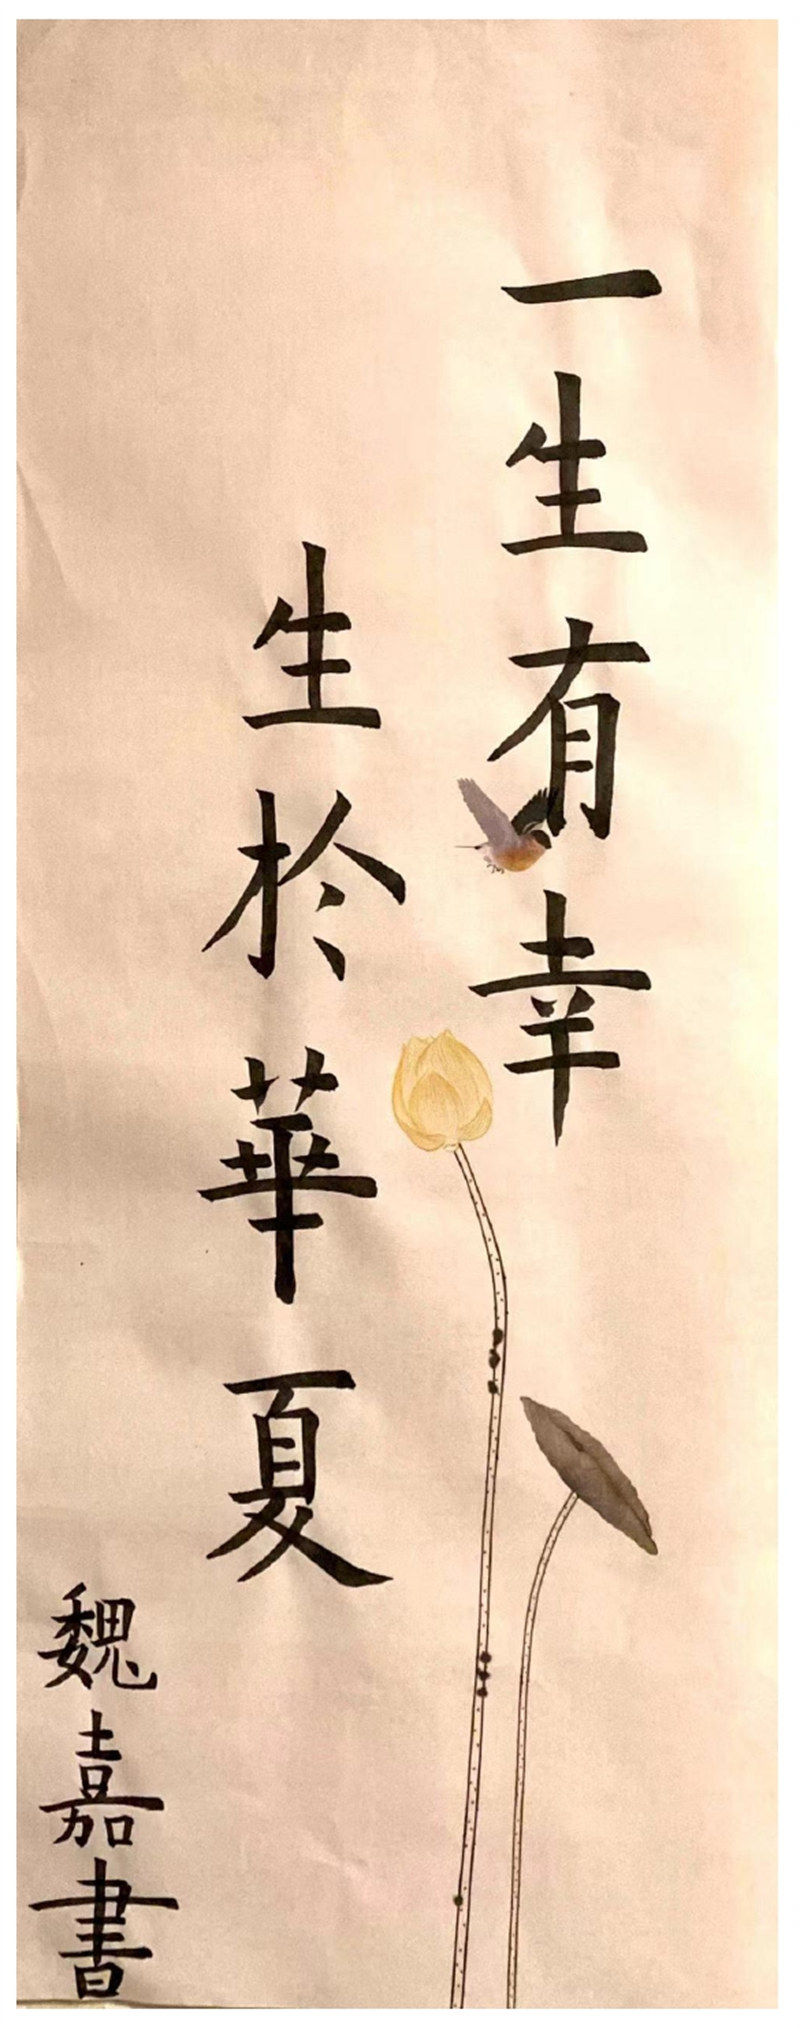 一生有幸
生於華夏
魏嘉書